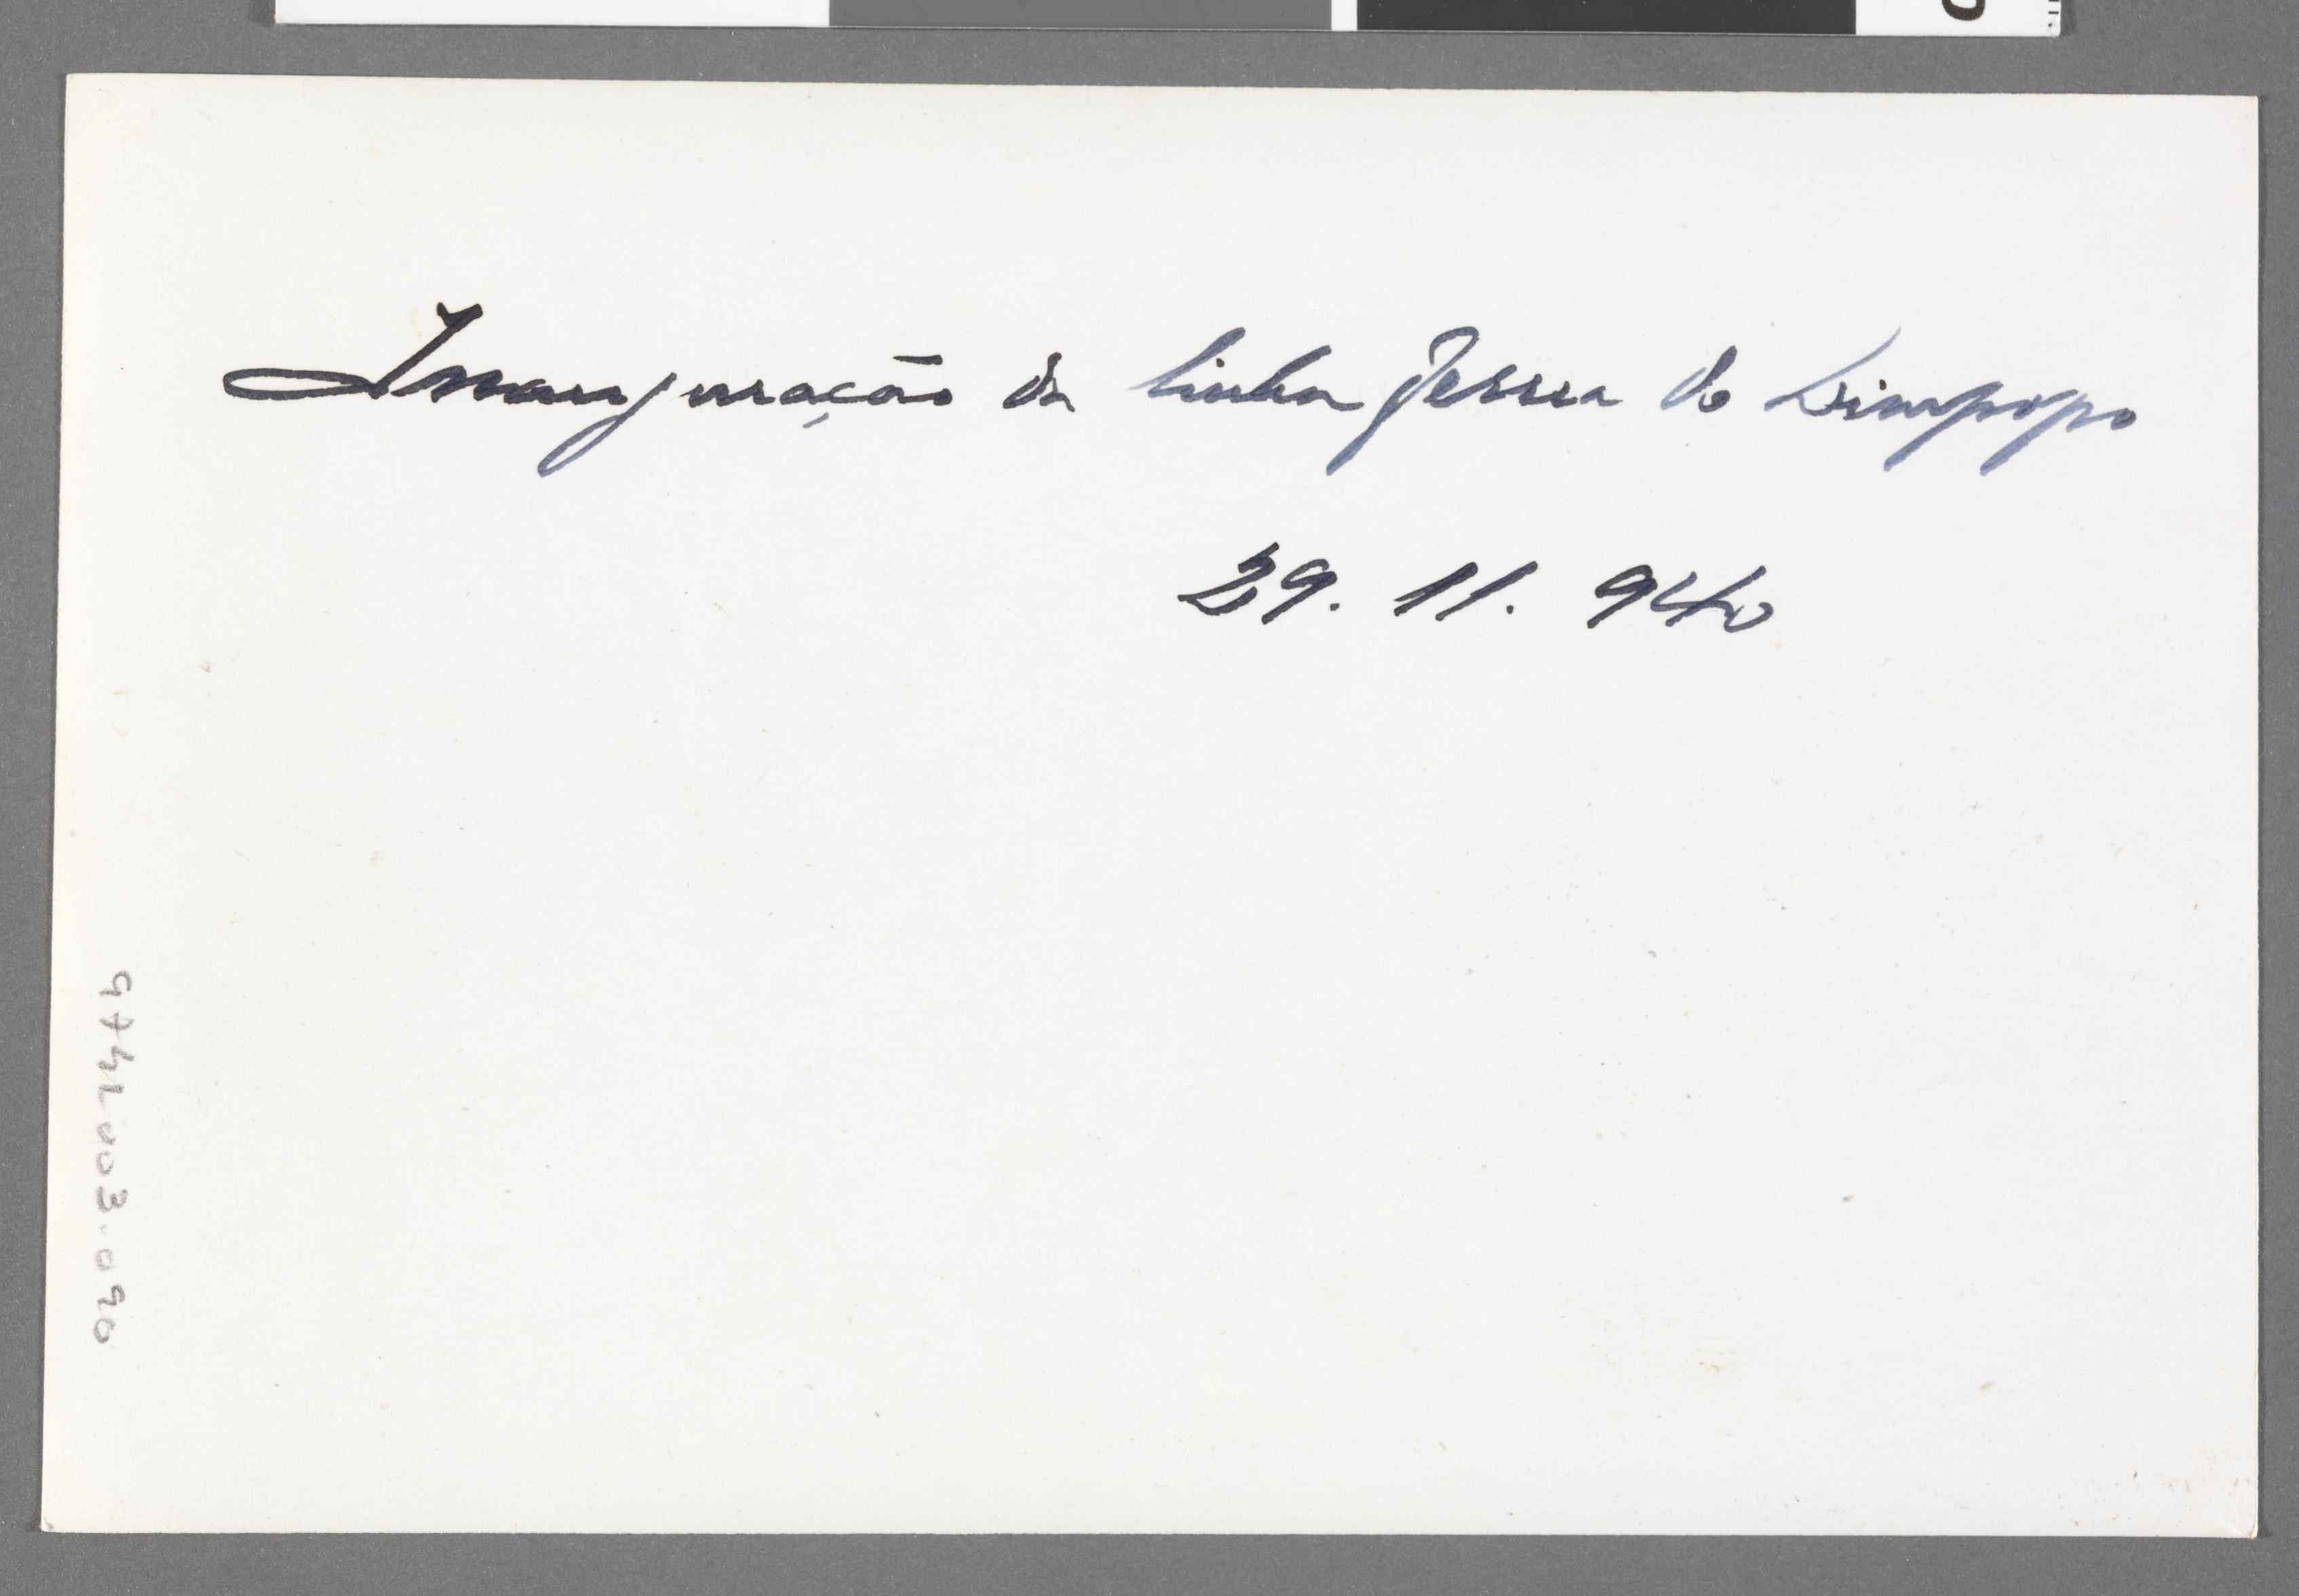 Inauguração da linha ferrea do Limpopo
29. 11. 940